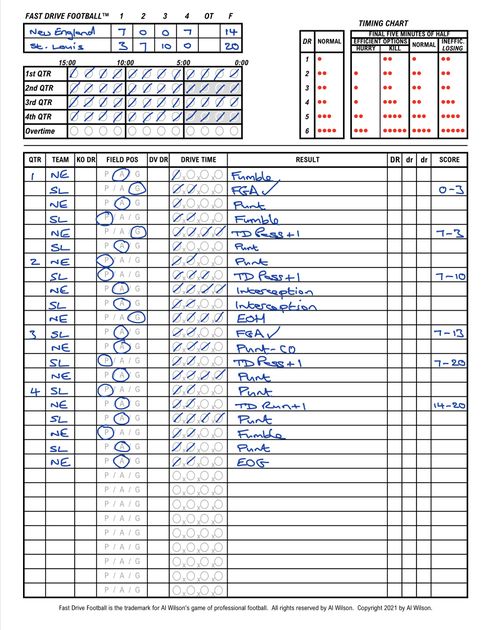 FAST DRIVE FOOTBALL™ 1 2 3 4 OT F
New England 7 0 0 7 14
St. Louis 3 7 10 0 20
15:00 10:00 5:00 0:00
1st QTR
2nd QTR
3rd QTR
4th QTR
Overtime
TIMING CHART
FINAL FIVE MINUTES OF HALF
DR NORMAL EFFICIENT OPTIONS NORMAL INEFFIC.
HURRY KILL LOSING
1
2
3
4
5
6
QTR TEAM KO DR FIELD POS DV DR DRIVE TIME RESULT DR dr dr SCORE
1 NE P / A / G Fumble
SL P / A / G FGA ✓ 0-3
NE P / A / G Punt
SL P / A / G Fumble
NE P / A / G TD Pass+1 7-3
SL P / A / G Punt
2 NE P / A / G Punt
SL P / A / G TD Pass+1 7-10
NE P / A / G Interception
SL P / A / G Interception
NE P / A / G EOH
3 SL P / A / G FGA ✓ 7-13
NE P / A / G Punt-CO
SL P / A / G TD Pass+1 7-20
NE P / A / G Punt
4 SL P / A / G Punt
NE P / A / G TD Run+1 14-20
SL P / A / G Punt
NE P / A / G Fumble
SL P / A / G Punt
NE P / A / G EOG
P / A / G
P / A / G
P / A / G
P / A / G
P / A / G
P / A / G
P / A / G
P / A / G
P / A / G
Fast Drive Football is the trademark for Al Wilson's game of professional football. All rights reserved by Al Wilson. Copyright 2021 by Al Wilson.